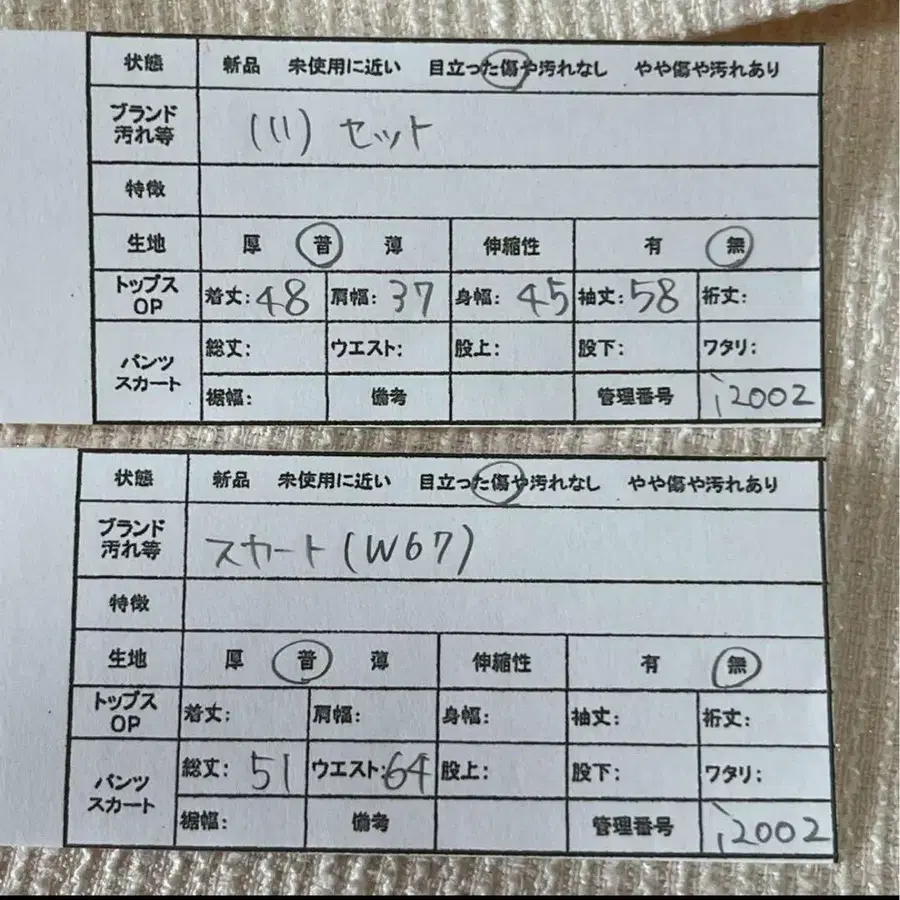 状態 新品 未使用に近い 目立った傷や汚れなし やや傷や汚れあり
ブランド
汚れ等
(11) セット
特徴
生地 厚 普 薄 伸縮性 有 無
トップス
OP
着丈:48 肩幅:37 身幅:45 袖丈:58 裄丈:
パンツ
スカート
総丈: ウエスト: 股上: 股下: ワタリ:
裾幅: 備考 管理番号 i2002
状態 新品 未使用に近い 目立った傷や汚れなし やや傷や汚れあり
ブランド
汚れ等
スカート(W67)
特徴
生地 厚 普 薄 伸縮性 有 無
トップス
OP
着丈: 肩幅: 身幅: 袖丈: 裄丈:
パンツ
スカート
総丈:51 ウエスト:64 股上: 股下: ワタリ:
裾幅: 備考 管理番号 i2002